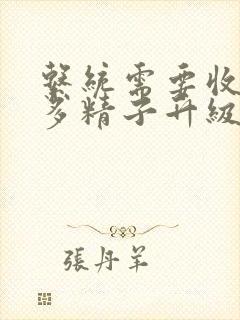 繫統需要收
多精子升級
張丹羊